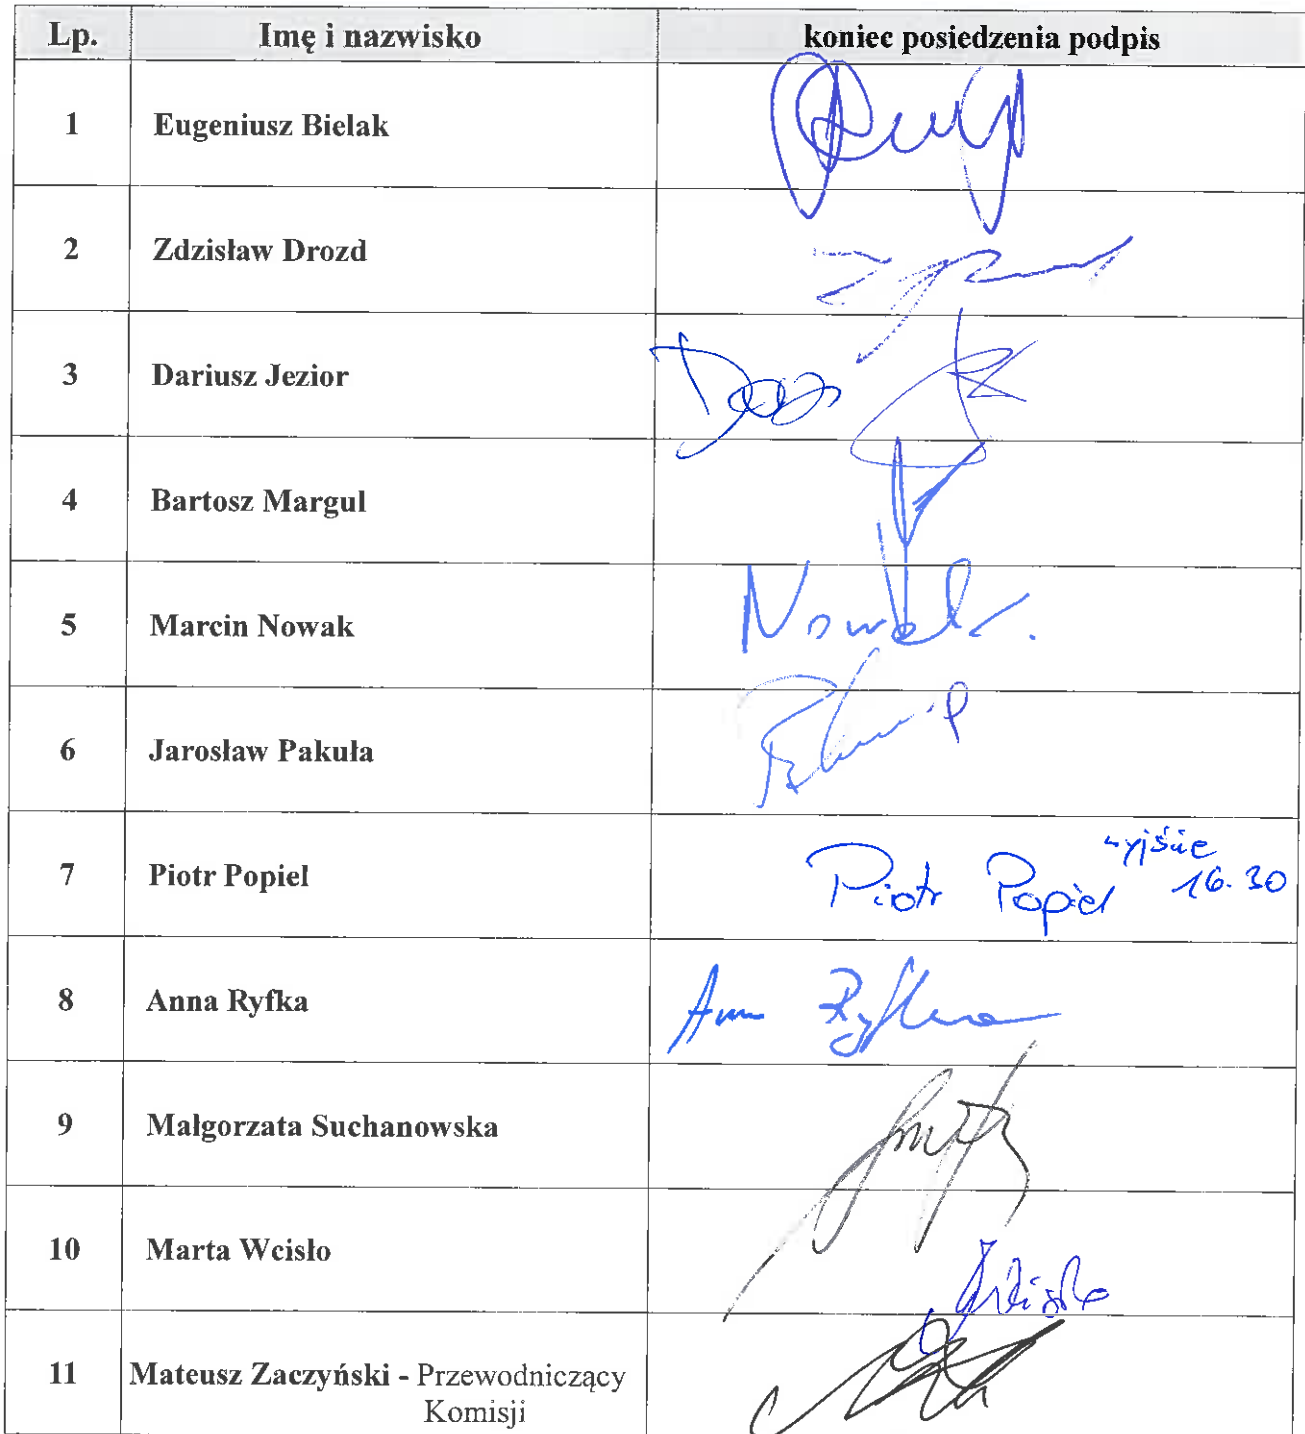 Lp. Imę i nazwisko koniec posiedzenia podpis
1 Eugeniusz Bielak
2 Zdzisław Drozd
3 Dariusz Jezior
4 Bartosz Margul
5 Marcin Nowak Nowak
6 Jarosław Pakuła
wyjście
7 Piotr Popiel Piotr Popiel 16.30
8 Anna Ryfka Anna Ryfka
9 Małgorzata Suchanowska
10 Marta Wcisło
11 Mateusz Zaczyński - Przewodniczący
Komisji